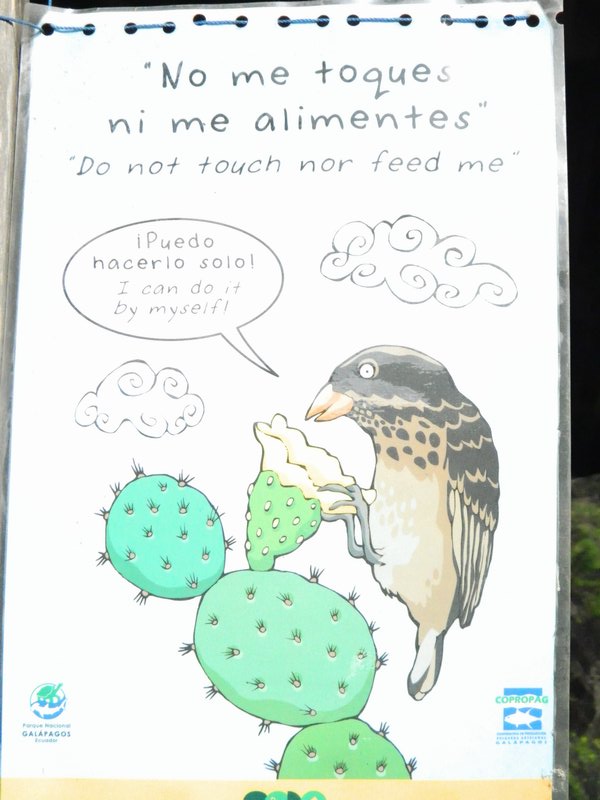 "No me toques
ni me alimentes"
"Do not touch nor feed me"
¡Puedo
hacerlo solo!
I can do it
by myself!
Parque Nacional
GALÁPAGOS
Ecuador
COPROPAG
GALÁPAGOS